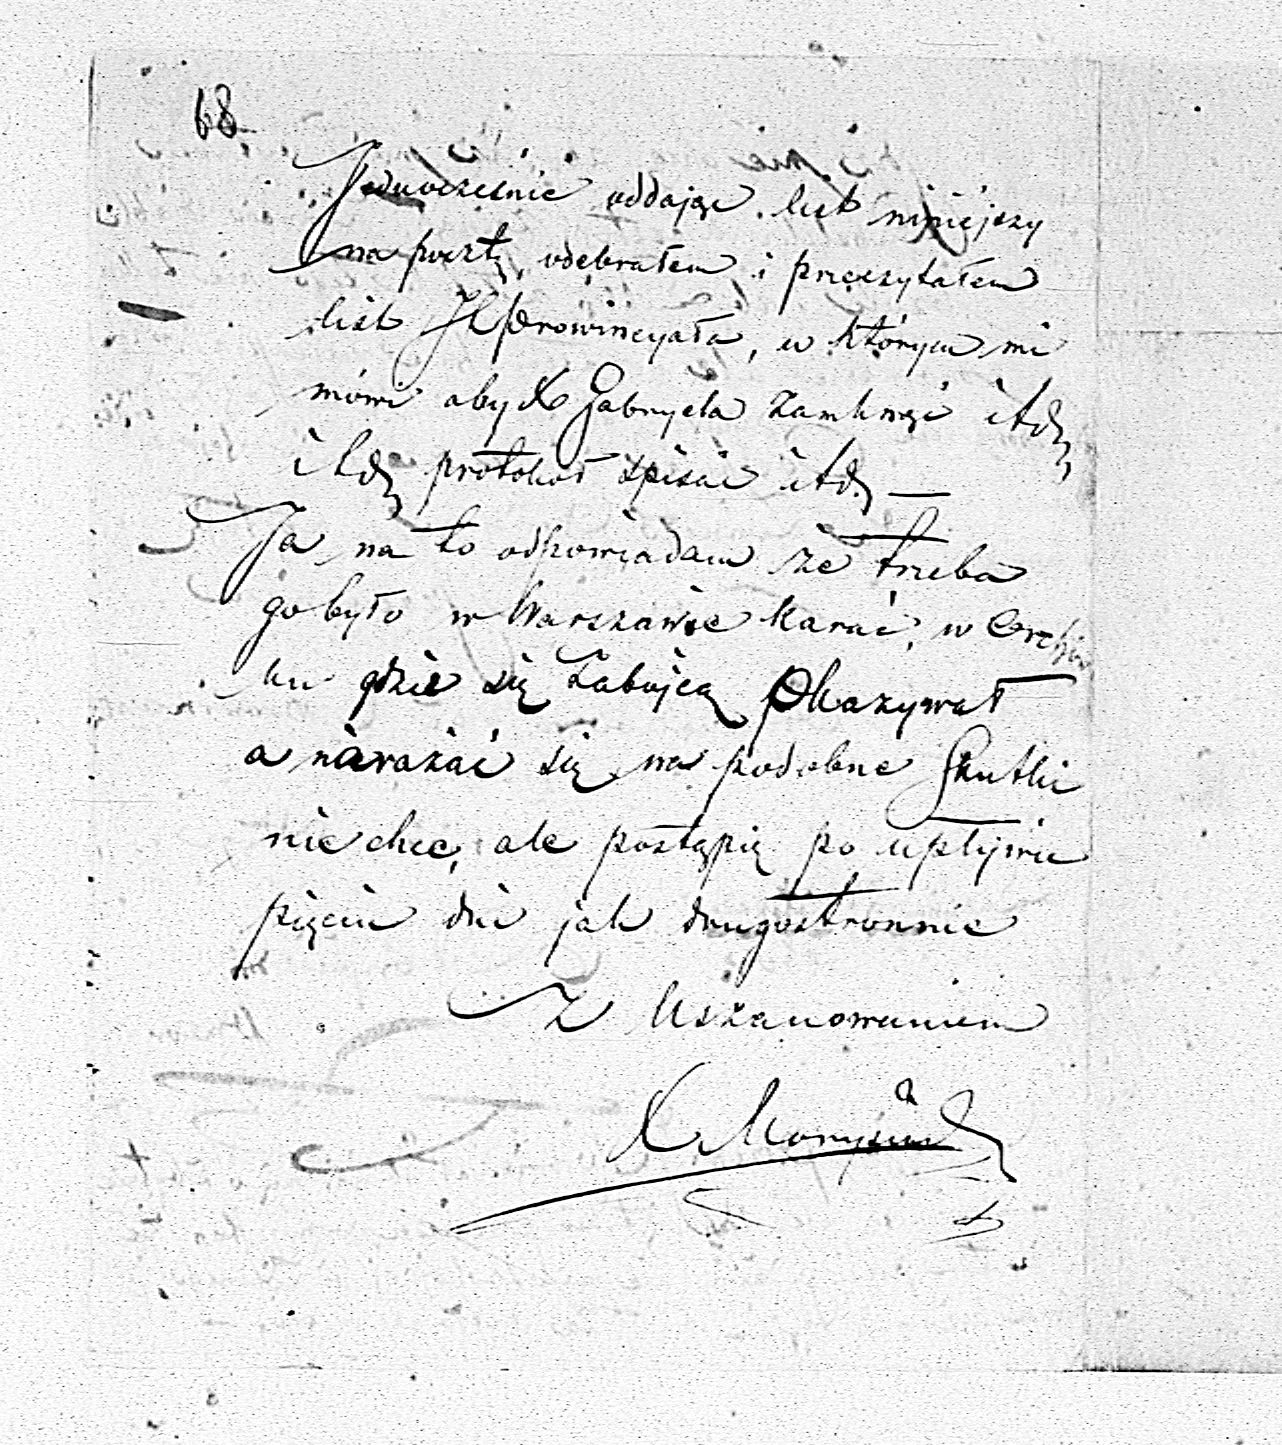 68
Jednocześnie oddając list niniejszy
na pocztę, odebrałem i przeczytałem
list JX Prowincyała, w którym mi
mówi aby X Gabryela zamknąć itd,
itd protokoł spisać itd —
Ja na to odpowiadam że trzeba
go było w Warszawie karać, w
ku gdzie się Zabójcą Okazywał
a narażać się na podobne Skutki
nie chcę, ale postąpię po upływie
pięciu dni jak drugostronnie
Z Uszanowaniem
X